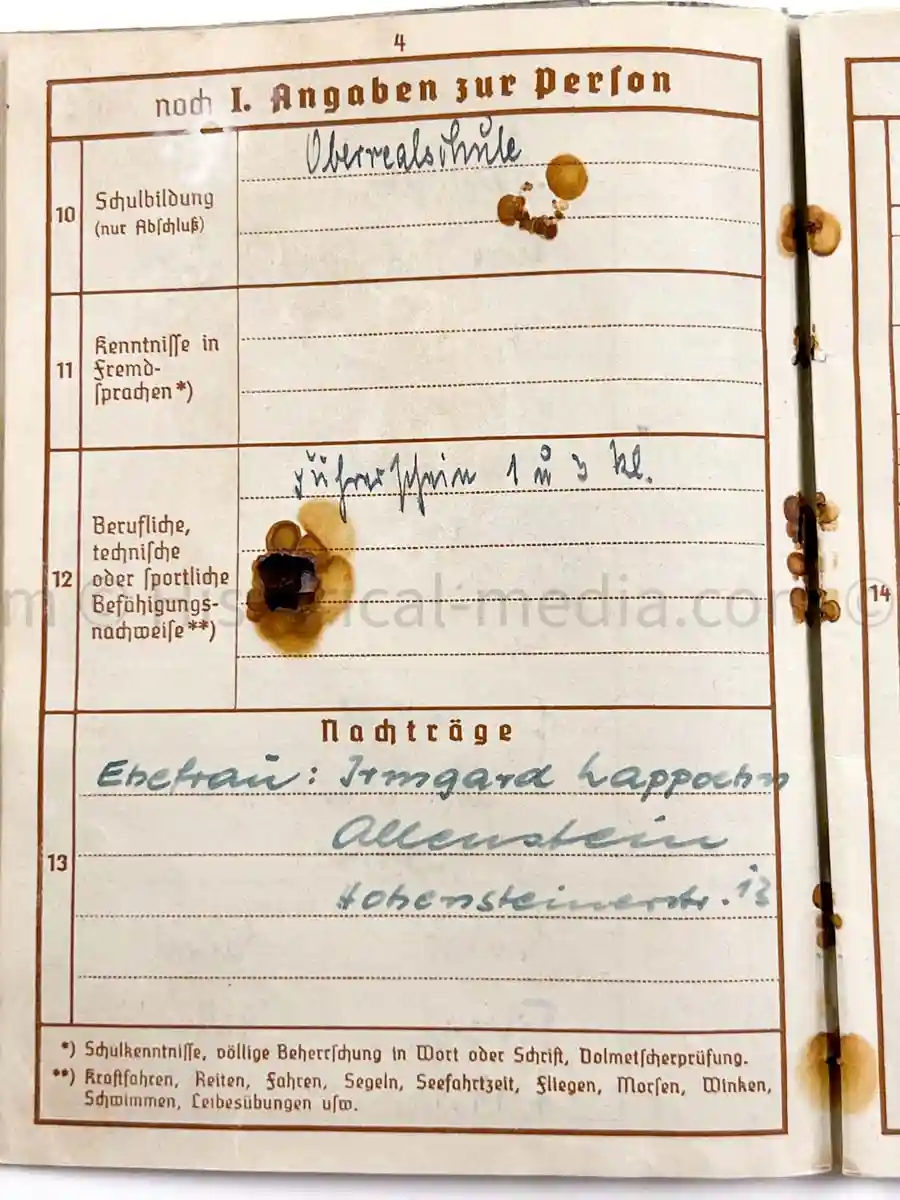 4
noch I. Angaben zur Person
10
Schulbildung
(nur Abschluß)
Oberrealschule
11
Kenntnisse in
Fremd-
sprachen *)
12
Berufliche,
technische
oder sportliche
Befähigungs-
nachweise **)
Führerschein 1 u 3 Kl.
Nachträge
13
Ehefrau: Irmgard Lappoehn
Allenstein
Hohensteinerstr. 13
*) Schulkenntnisse, völlige Beherrschung in Wort oder Schrift, Dolmetscherprüfung.
**) Kraftfahren, Reiten, Fahren, Segeln, Seefahrtzeit, Fliegen, Morsen, Winken,
Schwimmen, Leibesübungen usw.
14
m © Historical-media.com ©